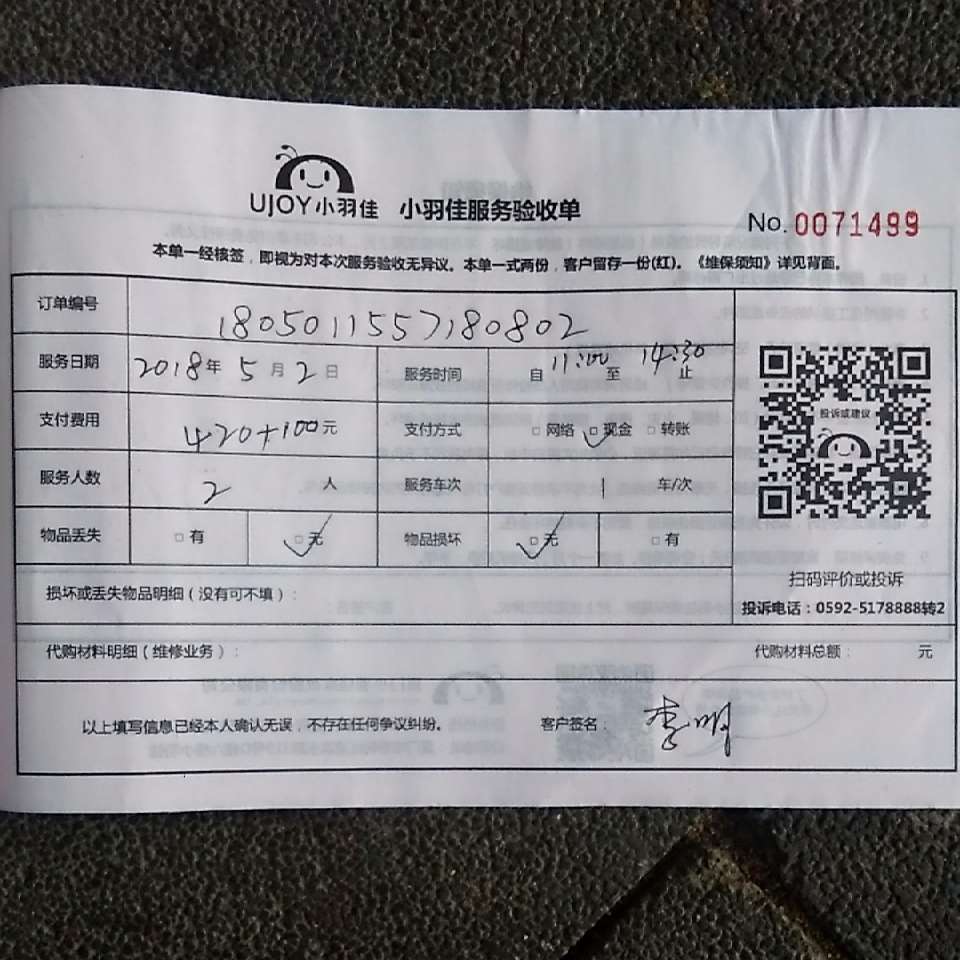 UJOY小羽佳 小羽佳服务验收单
No. 0071499
本单一经核签，即视为对本次服务验收无异议。本单一式两份，客户留存一份(红)。《维保须知》详见背面。
订单编号 1805011557180802
服务日期 2018年5月2日 服务时间 自11:00至14:30止
支付费用 420+100元 支付方式 □网络 □现金 □转账
服务人数 2人 服务车次 1车/次
物品丢失 □有 □无 物品损坏 □无 □有
投诉或建议
扫码评价或投诉
投诉电话：0592-5178888转2
损坏或丢失物品明细（没有可不填）：
代购材料明细（维修业务）： 代购材料总额： 元
以上填写信息已经本人确认无误，不存在任何争议纠纷。 客户签名：李明